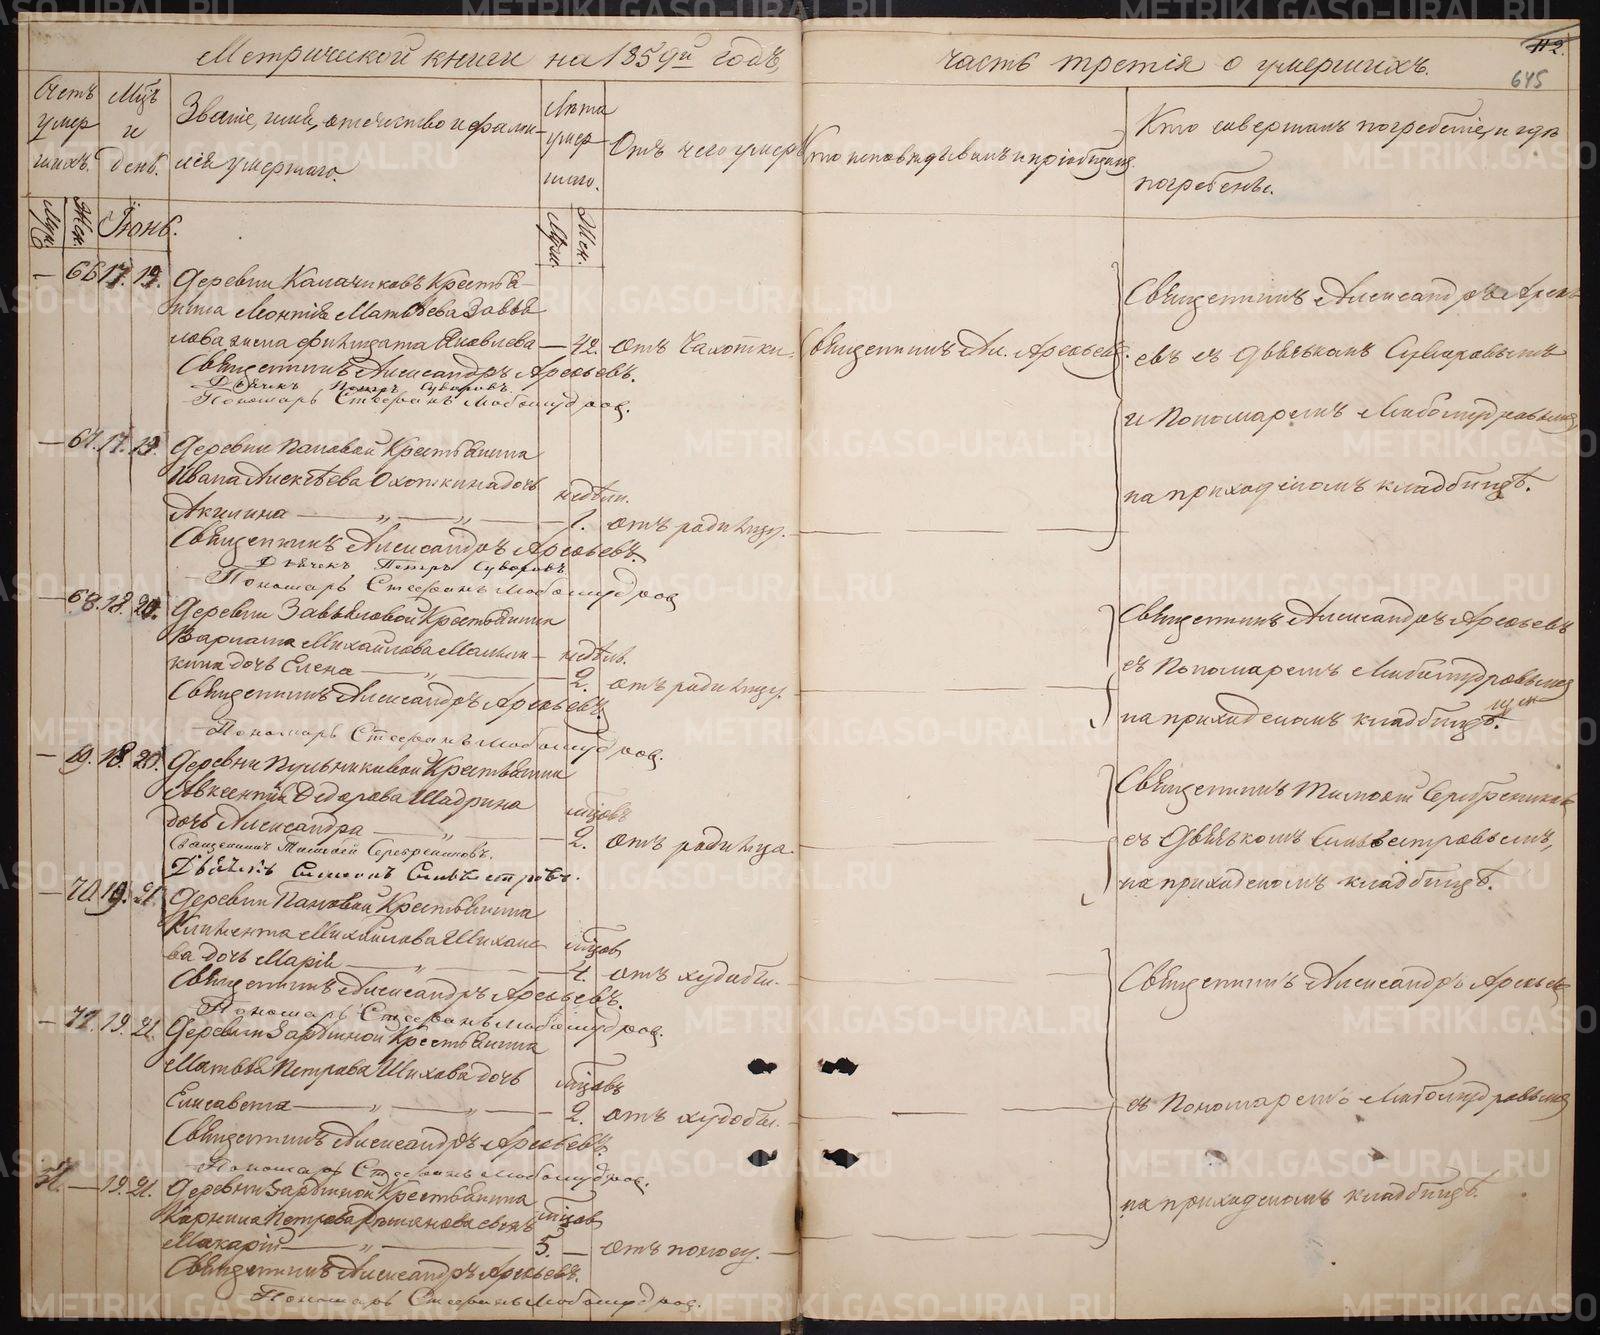 Метрической книги на 1859й годъ,
часть третія о умершихъ.
112.
645
Счетъ умершихъ.
Мцъ и день.
Званіе, имя, отечество и фамилія умершаго.
Лѣта умершаго.
Отъ чего умеръ
Кто исповѣдывалъ и пріобщалъ
Кто совершалъ погребеніе и гдѣ
погребены.
Муж.
Жен.
Іюнь.
Муж.
Жен.
— 66 17. 19. Деревни Калачиковъ Крестья-
нина Леонтія Матвѣева Завья
лова жена Яковлева — 42. отъ чахотки. Священникъ Ал. Арефьевъ.
Священникъ Александръ Арефьевъ.
Дьячекъ Петръ Суворовъ
Пономарь Стефанъ Любомудровъ.
Священникъ Александръ Арефь
евъ съ Дьячькомъ Суворовымъ
и Пономаремъ Любомудровымъ
на приходскомъ кладбищѣ.
— 67. 17. 19. Деревни Пановой Крестьянина
Ивана Алексѣева Охоткина дочь
недѣли.
Акилина — „ — „ — 1. отъ родимцу.
Священникъ Александръ Арефьевъ.
Дьячек Петръ Суворовъ
Пономарь Стефанъ Любомудров
— 68. 18. 20. Деревни Завьяловой Крестьянина
Варлама Михайлова
недѣль.
дочь Елена — „ — 2. отъ родимцу.
Священникъ Александръ Арефьевъ.
Пономарь Стефанъ Любомудров.
Священникъ Александръ Арефьевъ
съ Пономаремъ Любомудровымъ
на приходскомъ кладбищѣ.
— 69. 18. 20. Деревни Крестьянина
Авксентія Федорова Шадрина
мцовъ
дочь Александра — „ — 2. отъ родимца.
Священникъ Тимофей Серебрениковъ.
Дьячекъ Симеонъ Сильвестровъ.
Священникъ Тимофей Серебрениковъ
съ Дьячькомъ Сильвестровымъ,
на приходскомъ кладбищѣ.
— 70. 19. 21. Деревни Пановой Крестьянина
Климента Михайлова
мцов
дочь Марія — „ — 4. отъ худобы.
Священникъ Александръ Арефьевъ.
Пономарь Стефанъ Любомудров.
— 71. 19. 21. Деревни Зарѣчной Крестьянина
Матвѣя Петрова Шихова дочь
мцовъ
Елисавета — „ — „ — 2. отъ худобы.
Священникъ Александръ Арефьевъ.
Пономарь Стефанъ Любомудров.
Священникъ Александръ Арефьев
съ Пономаремъ Любомудровымъ
на приходскомъ кладбищѣ.
— 19. 21. Деревни Зарѣчной Крестьянина
Петрова сынъ
мцов
Макарій — „ — 5. — отъ поносу.
Священникъ Александръ Арефьевъ.
Пономарь Стефанъ Любомудров.
METRIKI.GASO-URAL.RU